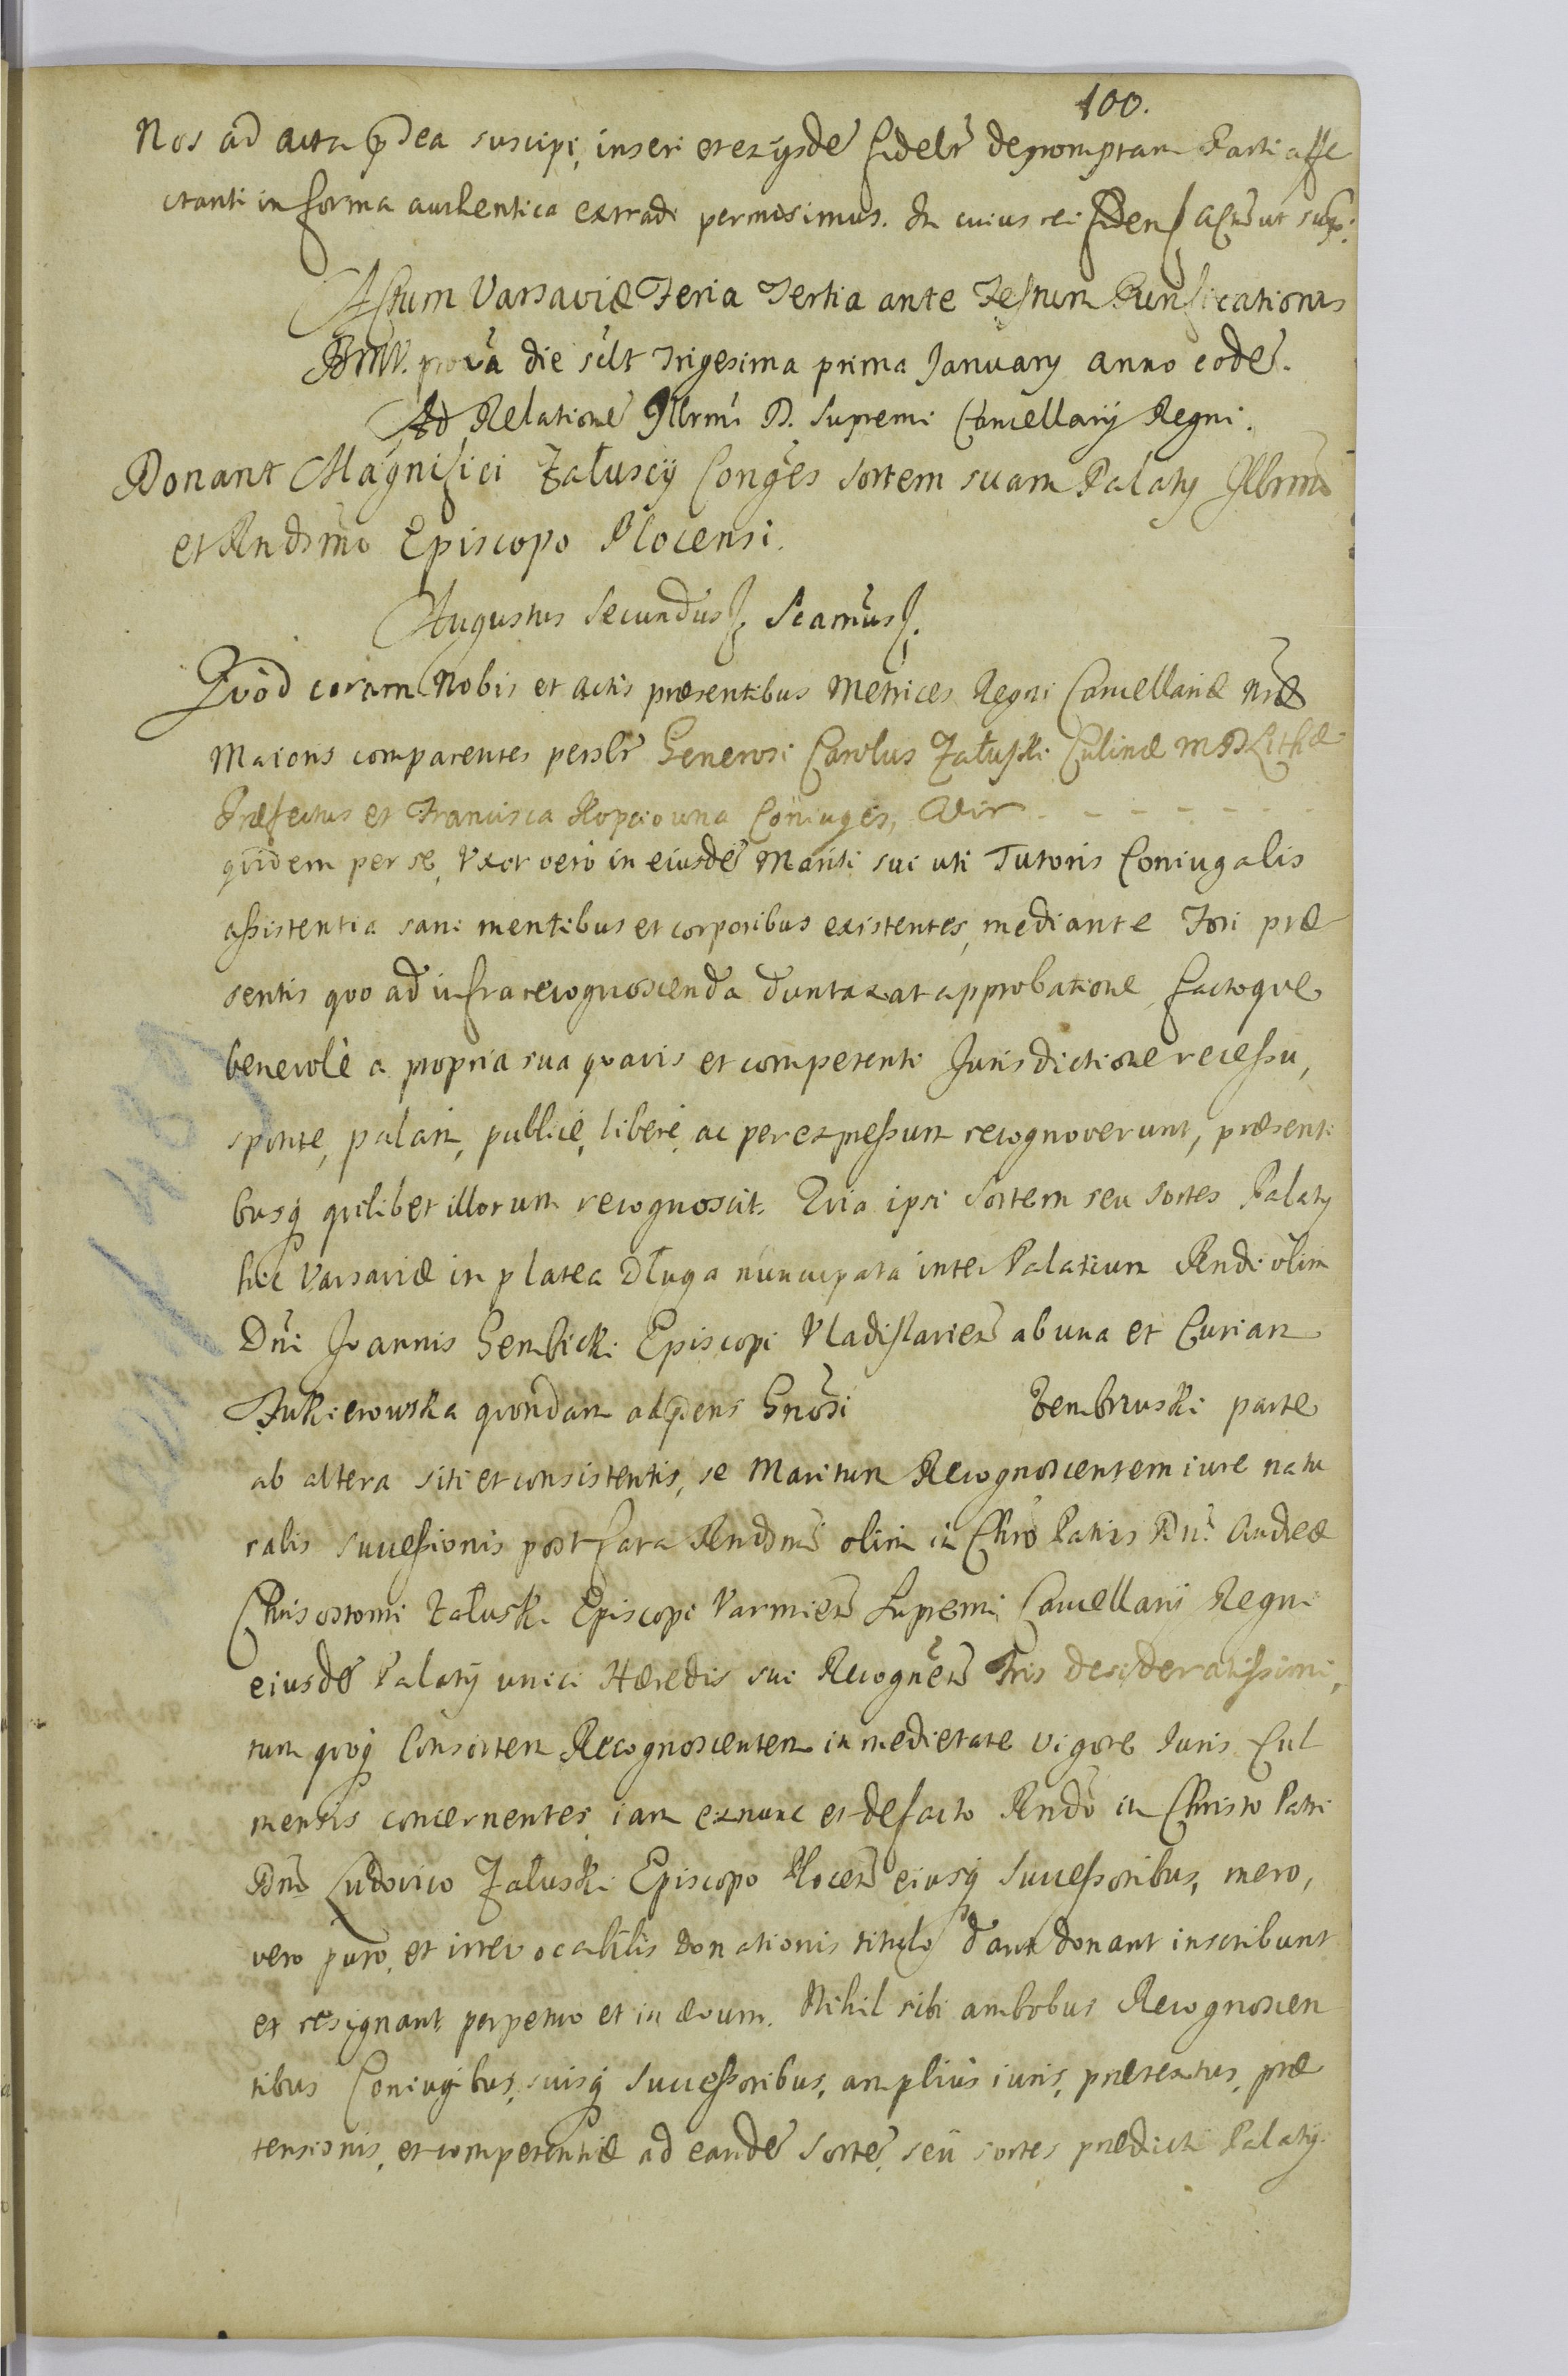 100.
Nos ad acta p̄dea suscipi, inseri et ex ijsdẽ fidelr̃ depromptam Parti affe
ctanti in forma authentica extradi permisimus. In cuius rei fidem
Actum Varsaviæ Feria Tertia ante Festum Purificationis
BMV. die scilt Trigesima prima January anno eodẽ.
Ad Relationẽ Illrmi D. Supremi Cancellarij Regni.
Donant Magnifici Załuscij Conges sortem suam Palaty Illrmo
et Rndsmo Episcopo Plocensi.
Augustus Secundus
Quod coram Nobis et actis præsentibus Metrices Regni Cancellariæ nræ
Maioris comparentes perslr̃ Generosi Carolus Załuski Culinæ M D Lithæ
Præfectus et Francisca Kopciowna Coniuges, Vir - - - - - - -
quidem per se, Uxor vero in eiusdẽ Mariti sui uti Tutoris Coniugalis
assistentia sani mentibus et corporibus existentes, mediante Fori præ
sentis quo ad infra recognoscenda duntaxat approbatione, factoque
benevolè a propria sua quavis et competenti Jurisdictione recessu,
sponte, palam, publicè, liberè, ac per expressum recognoverunt, præsenti
busq̃ quilibet illorum recognoscit. Quia ipsi Sortem seu sortes Palaty
hic Varsaviæ in platea Długa nuncupata inter Palatium Rndi olim
Dni Joannis Gembicki Episcopi Vladislavien ab una et Curiam
Żukierowska quondam ad p̄dens Gnosi Zembruski parte
ab altera siti et consistentis, se Maritum Recognoscentem iure natu
ralis successionis post fata Rnddmi olim in Chro Patris Dni Andreæ
Chrisostomi Załuski Episcopi Varmien Supremi Cancellarij Regni
eiusdẽ Palatij unici Hæredis sui Recognen Fris desideratissimi,
tum quoq̃ Consortem Recognoscentem in medietate vigore Juris Cul
mensis concernentes, iam ex nunc et de facto Rndo in Christo Patri
Dno Ludovico Załuski Episcopo Plocen eiusq̃ Successoribus, mero,
vero puro, et irrevocabilis donationis titulo dant donant inscribunt
et resignant perpetuo et in ævum. Nihil sibi ambobus Recognoscen
tibus Coniugibus, suisq̃ Successoribus, amplius iuris, prætextus, præ
tensionis, et competentiæ ad eandẽ sortẽ, seu sortes prædicti Palatij